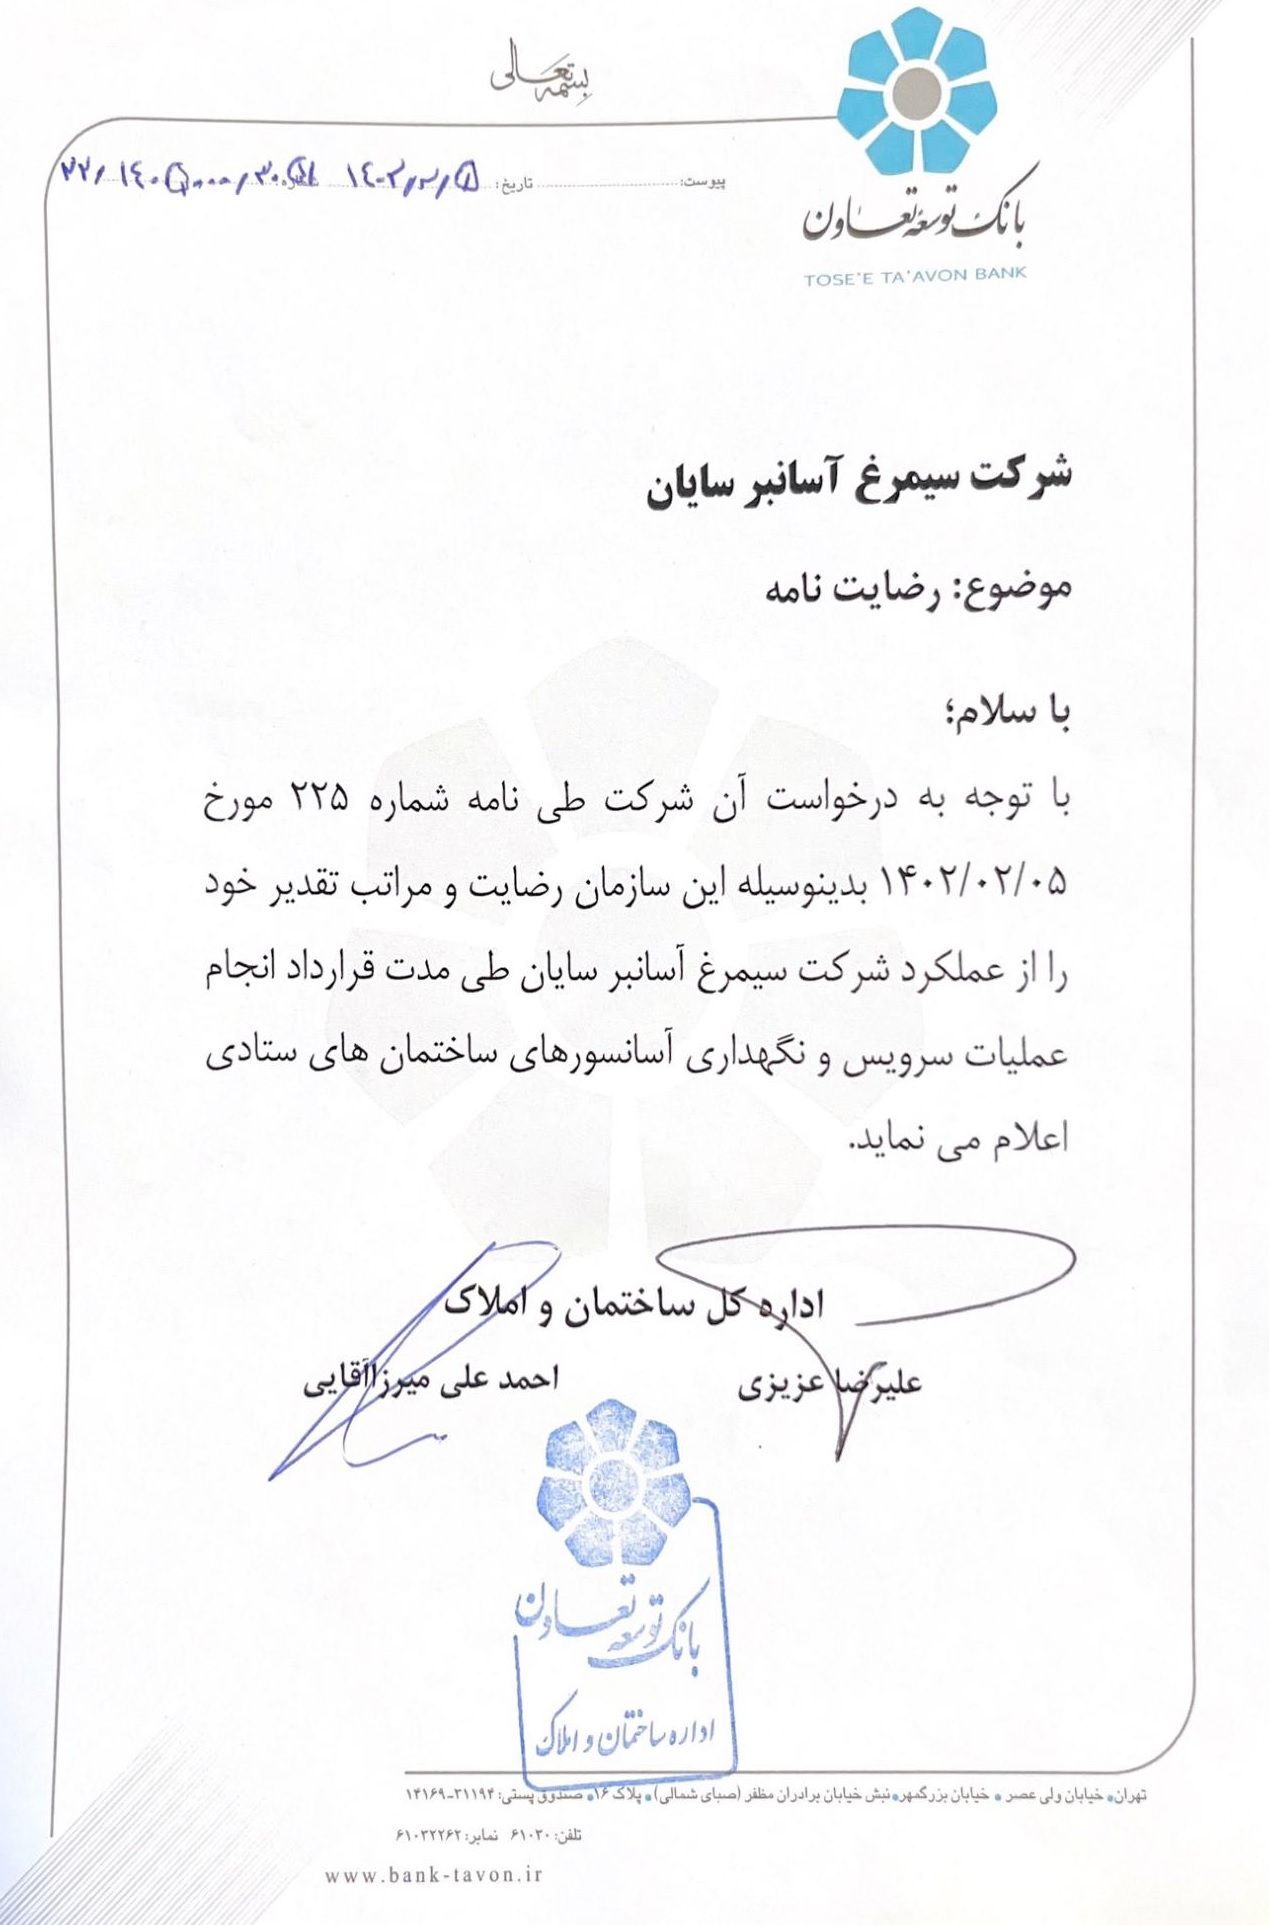 بسمه تعالی
بانک توسعه تعاون
TOSE'E TA'AVON BANK
پیوست: تاریخ: ۱۴۰۲/۳/۸ شماره
شرکت سیمرغ آسانبر سایان
موضوع: رضایت نامه
با سلام؛
با توجه به درخواست آن شرکت طی نامه شماره ۲۲۵ مورخ
۱۴۰۲/۰۲/۰۵ بدینوسیله این سازمان رضایت و مراتب تقدیر خود
را از عملکرد شرکت سیمرغ آسانبر سایان طی مدت قرارداد انجام
عملیات سرویس و نگهداری آسانسورهای ساختمان های ستادی
اعلام می نماید.
اداره کل ساختمان و املاک
علیرضا عزیزی احمد علی میرزاآقایی
بانک توسعه تعاون
اداره ساختمان و املاک
تهران• خیابان ولی عصر • خیابان بزرگمهر•نبش خیابان برادران مظفر (صبای شمالی)• پلاک ۱۶• صندوق پستی: ۳۱۱۹۴-۱۴۱۶۹
تلفن: ۶۱۰۳۰ نمابر: ۶۱۰۳۲۲۶۲
www.bank-tavon.ir